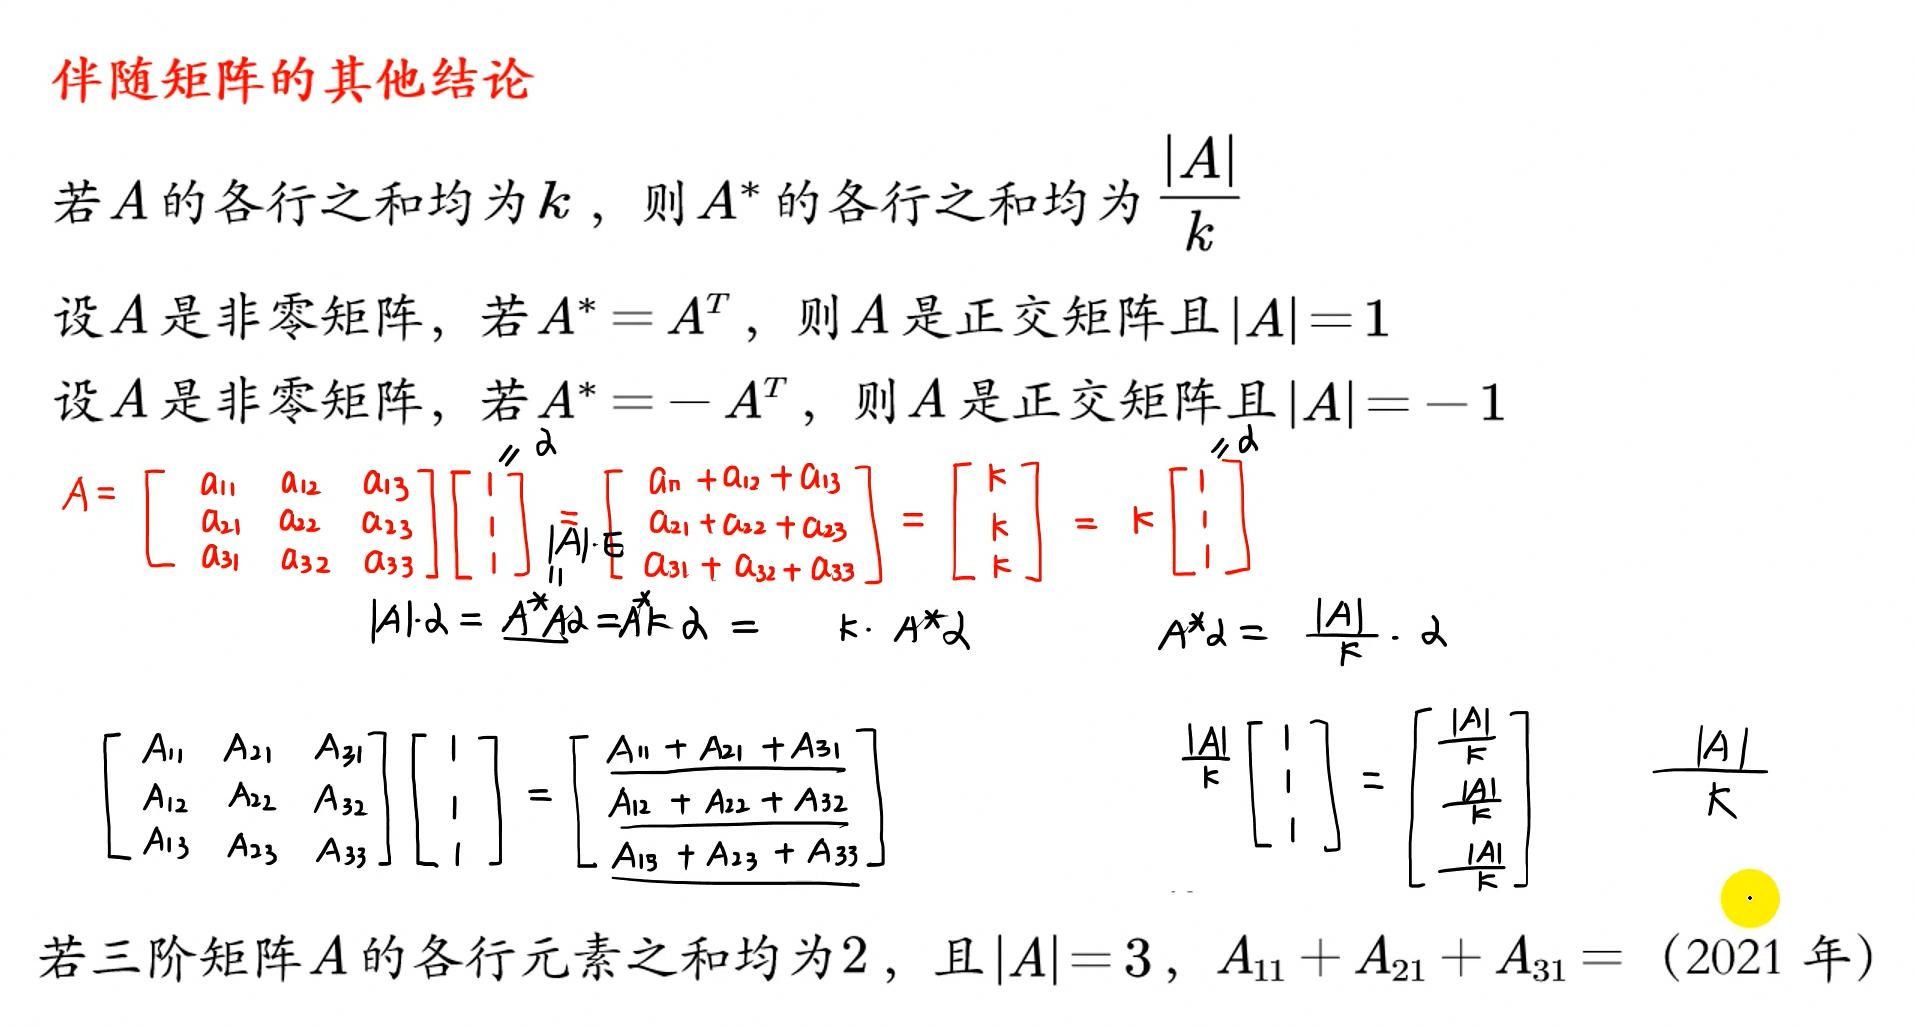 伴随矩阵的其他结论
若A的各行之和均为k，则A*的各行之和均为 |A|/k
设A是非零矩阵，若A* = A^T，则A是正交矩阵且|A| = 1
设A是非零矩阵，若A* = − A^T，则A是正交矩阵且|A| = − 1
= α = α
A = [a11 a12 a13; a21 a22 a23; a31 a32 a33] [1; 1; 1] = [a11 + a12 + a13; a21 + a22 + a23; a31 + a32 + a33] = [k; k; k] = k [1; 1; 1]
|A|·E
=
|A|·α = A*Aα = A*kα = k· A*α A*α = |A|/k · α
[A11 A21 A31; A12 A22 A32; A13 A23 A33] [1; 1; 1] = [A11 + A21 + A31; A12 + A22 + A32; A13 + A23 + A33] |A|/k [1; 1; 1] = [|A|/k; |A|/k; |A|/k] |A|/k
若三阶矩阵A的各行元素之和均为2，且|A| = 3，A11 + A21 + A31 =（2021 年）